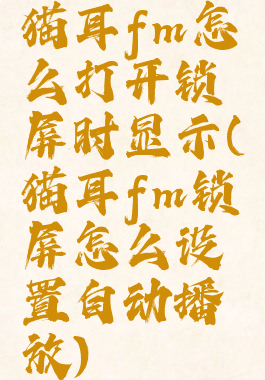 猫耳fm怎
么打开锁
屏时显示(
猫耳fm锁
屏怎么设
置自动播
放)